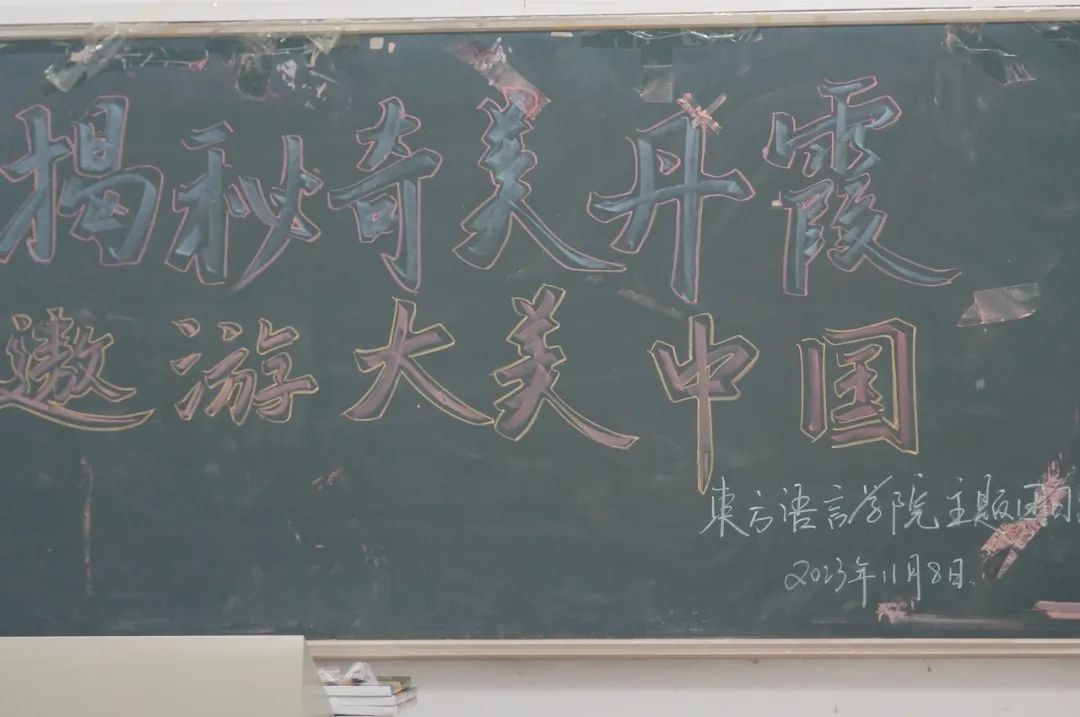 揭秘奇美丹霞
遨游大美中国
東方语言学院主题团日
2023年11月8日